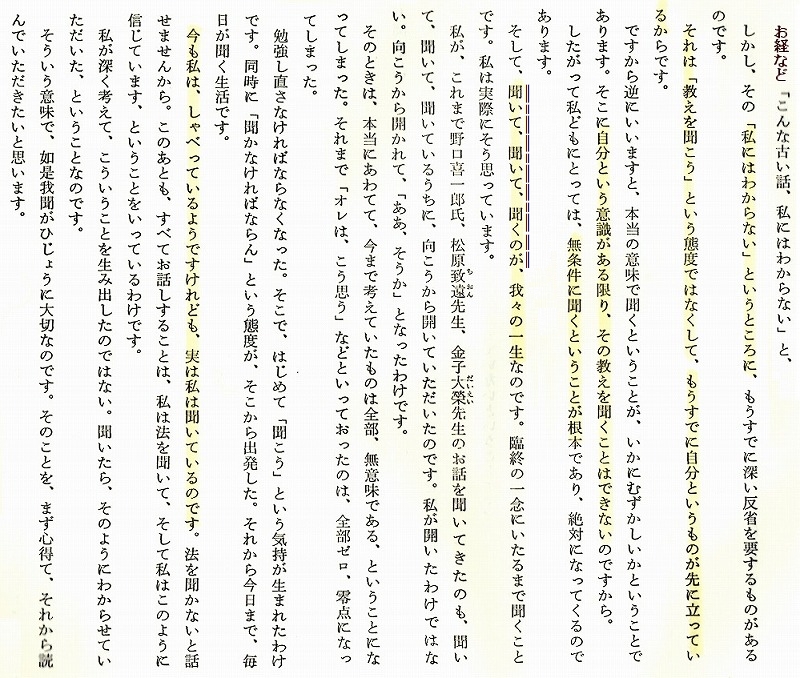 お経など「こんな古い話、私にはわからない」と、
しかし、その「私にはわからない」というところに、もうすでに深い反省を要するものがある
のです。
それは「教えを聞こう」という態度ではなくして、もうすでに自分というものが先に立ってい
るからです。
ですから逆にいいますと、本当の意味で聞くということが、いかにむずかしいかということで
あります。そこに自分という意識がある限り、その教えを聞くことはできないのですから。
したがって私どもにとっては、無条件に聞くということが根本であり、絶対になってくるので
あります。
そして、聞いて、聞いて、聞くのが、我々の一生なのです。臨終の一念にいたるまで聞くこと
です。私は実際にそう思っています。
私が、これまで野口喜一郎氏、松原致遠先生、金子大榮先生のお話を聞いてきたのも、聞い
ちおん
だいえい
て、聞いて、聞いているうちに、向こうから開いていただいたのです。私が開いたわけではな
い。向こうから開かれて、「ああ、そうか」となったわけです。
そのときは、本当にあわてて、今まで考えていたものは全部、無意味である、ということにな
ってしまった。それまで「オレは、こう思う」などといっておったのは、全部ゼロ、零点になっ
てしまった。
勉強し直さなければならなくなった。そこで、はじめて「聞こう」という気持が生まれたわけ
です。同時に「聞かなければならん」という態度が、そこから出発した。それから今日まで、毎
日が聞く生活です。
今も私は、しゃべっているようですけれども、実は私は聞いているのです。法を聞かないと話
せませんから。このあとも、すべてお話しすることは、私は法を聞いて、そして私はこのように
信じています、ということをいっているわけです。
私が深く考えて、こういうことを生み出したのではない。聞いたら、そのようにわからせてい
ただいた、ということなのです。
そういう意味で、如是我聞がひじょうに大切なのです。そのことを、まず心得て、それから読
んでいただきたいと思います。